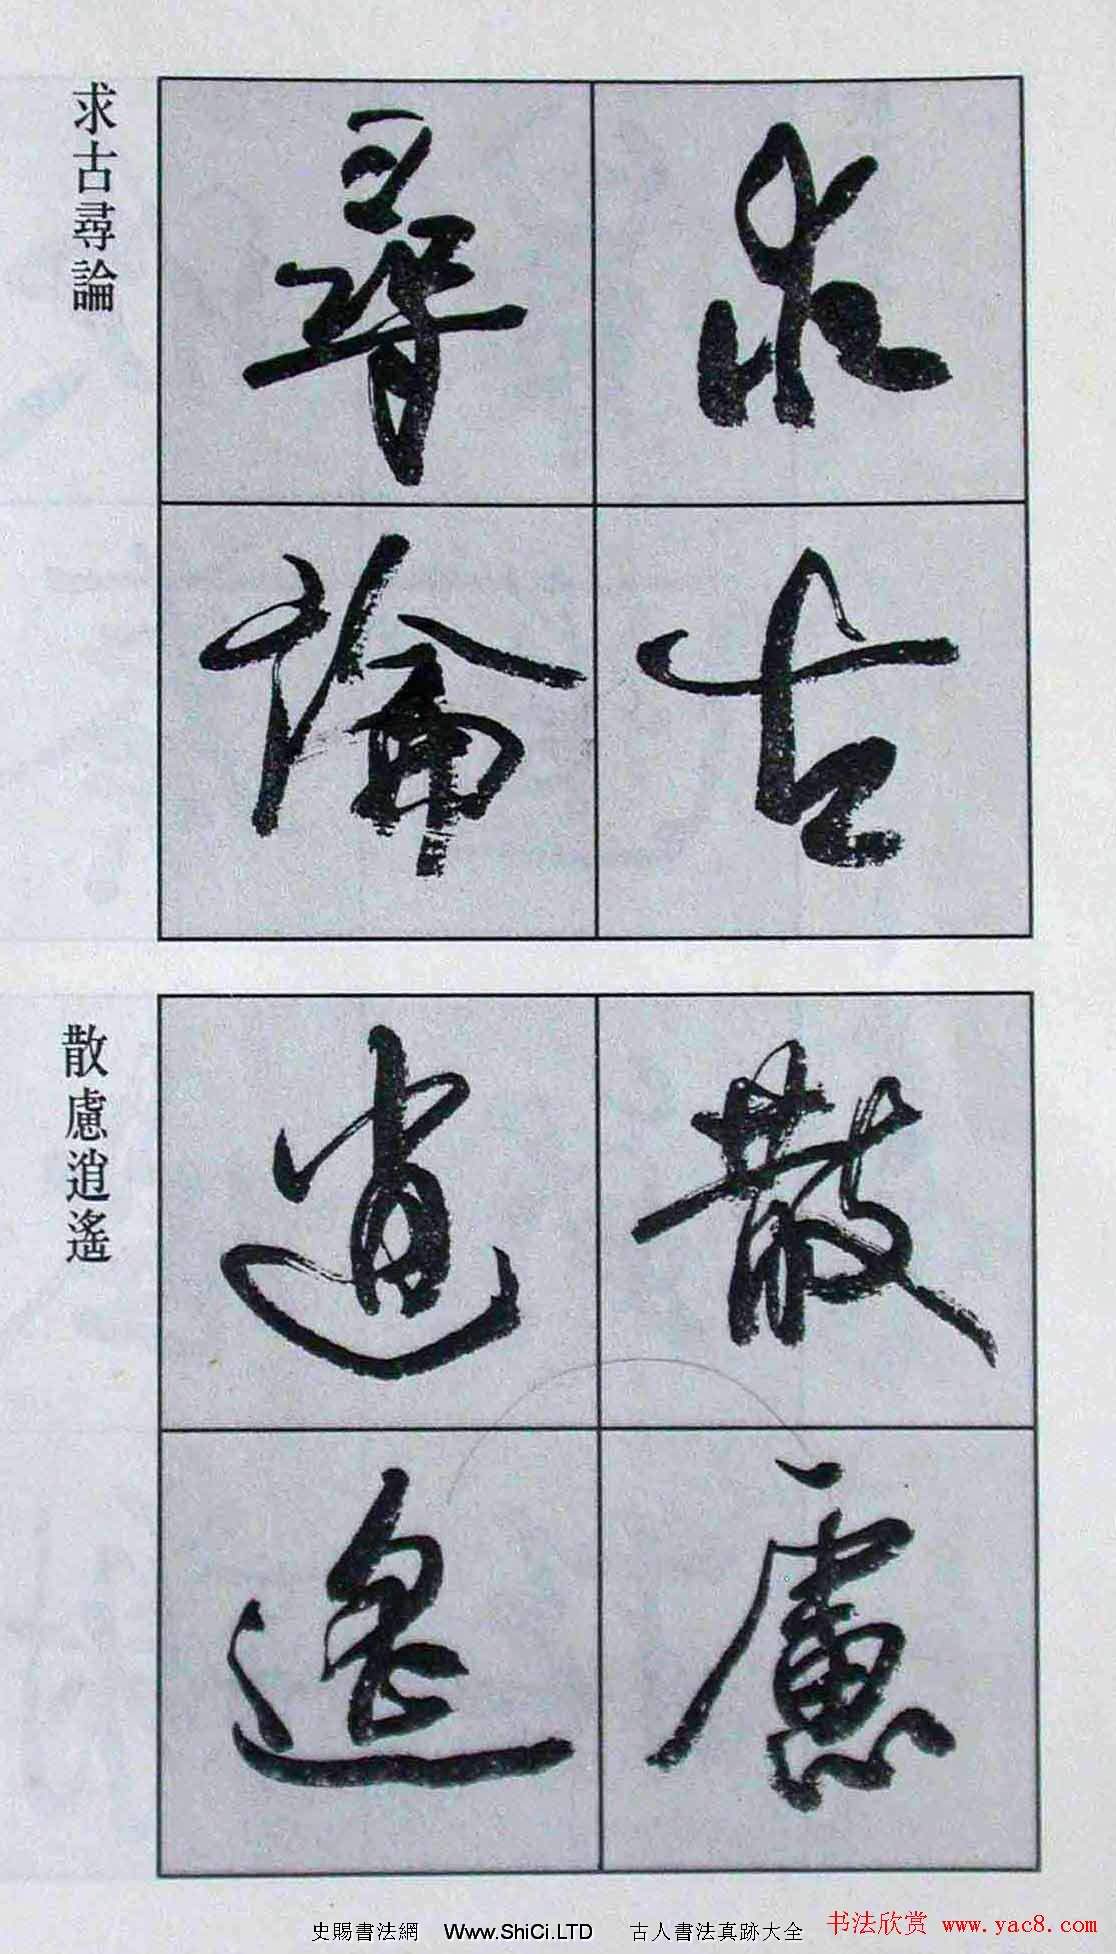 求古尋論
求古
尋論
散慮逍遙
散慮
逍遙
史賜書法網 Www.ShiCi.LTD 古人書法真跡大全
书法欣赏 www.yac8.com